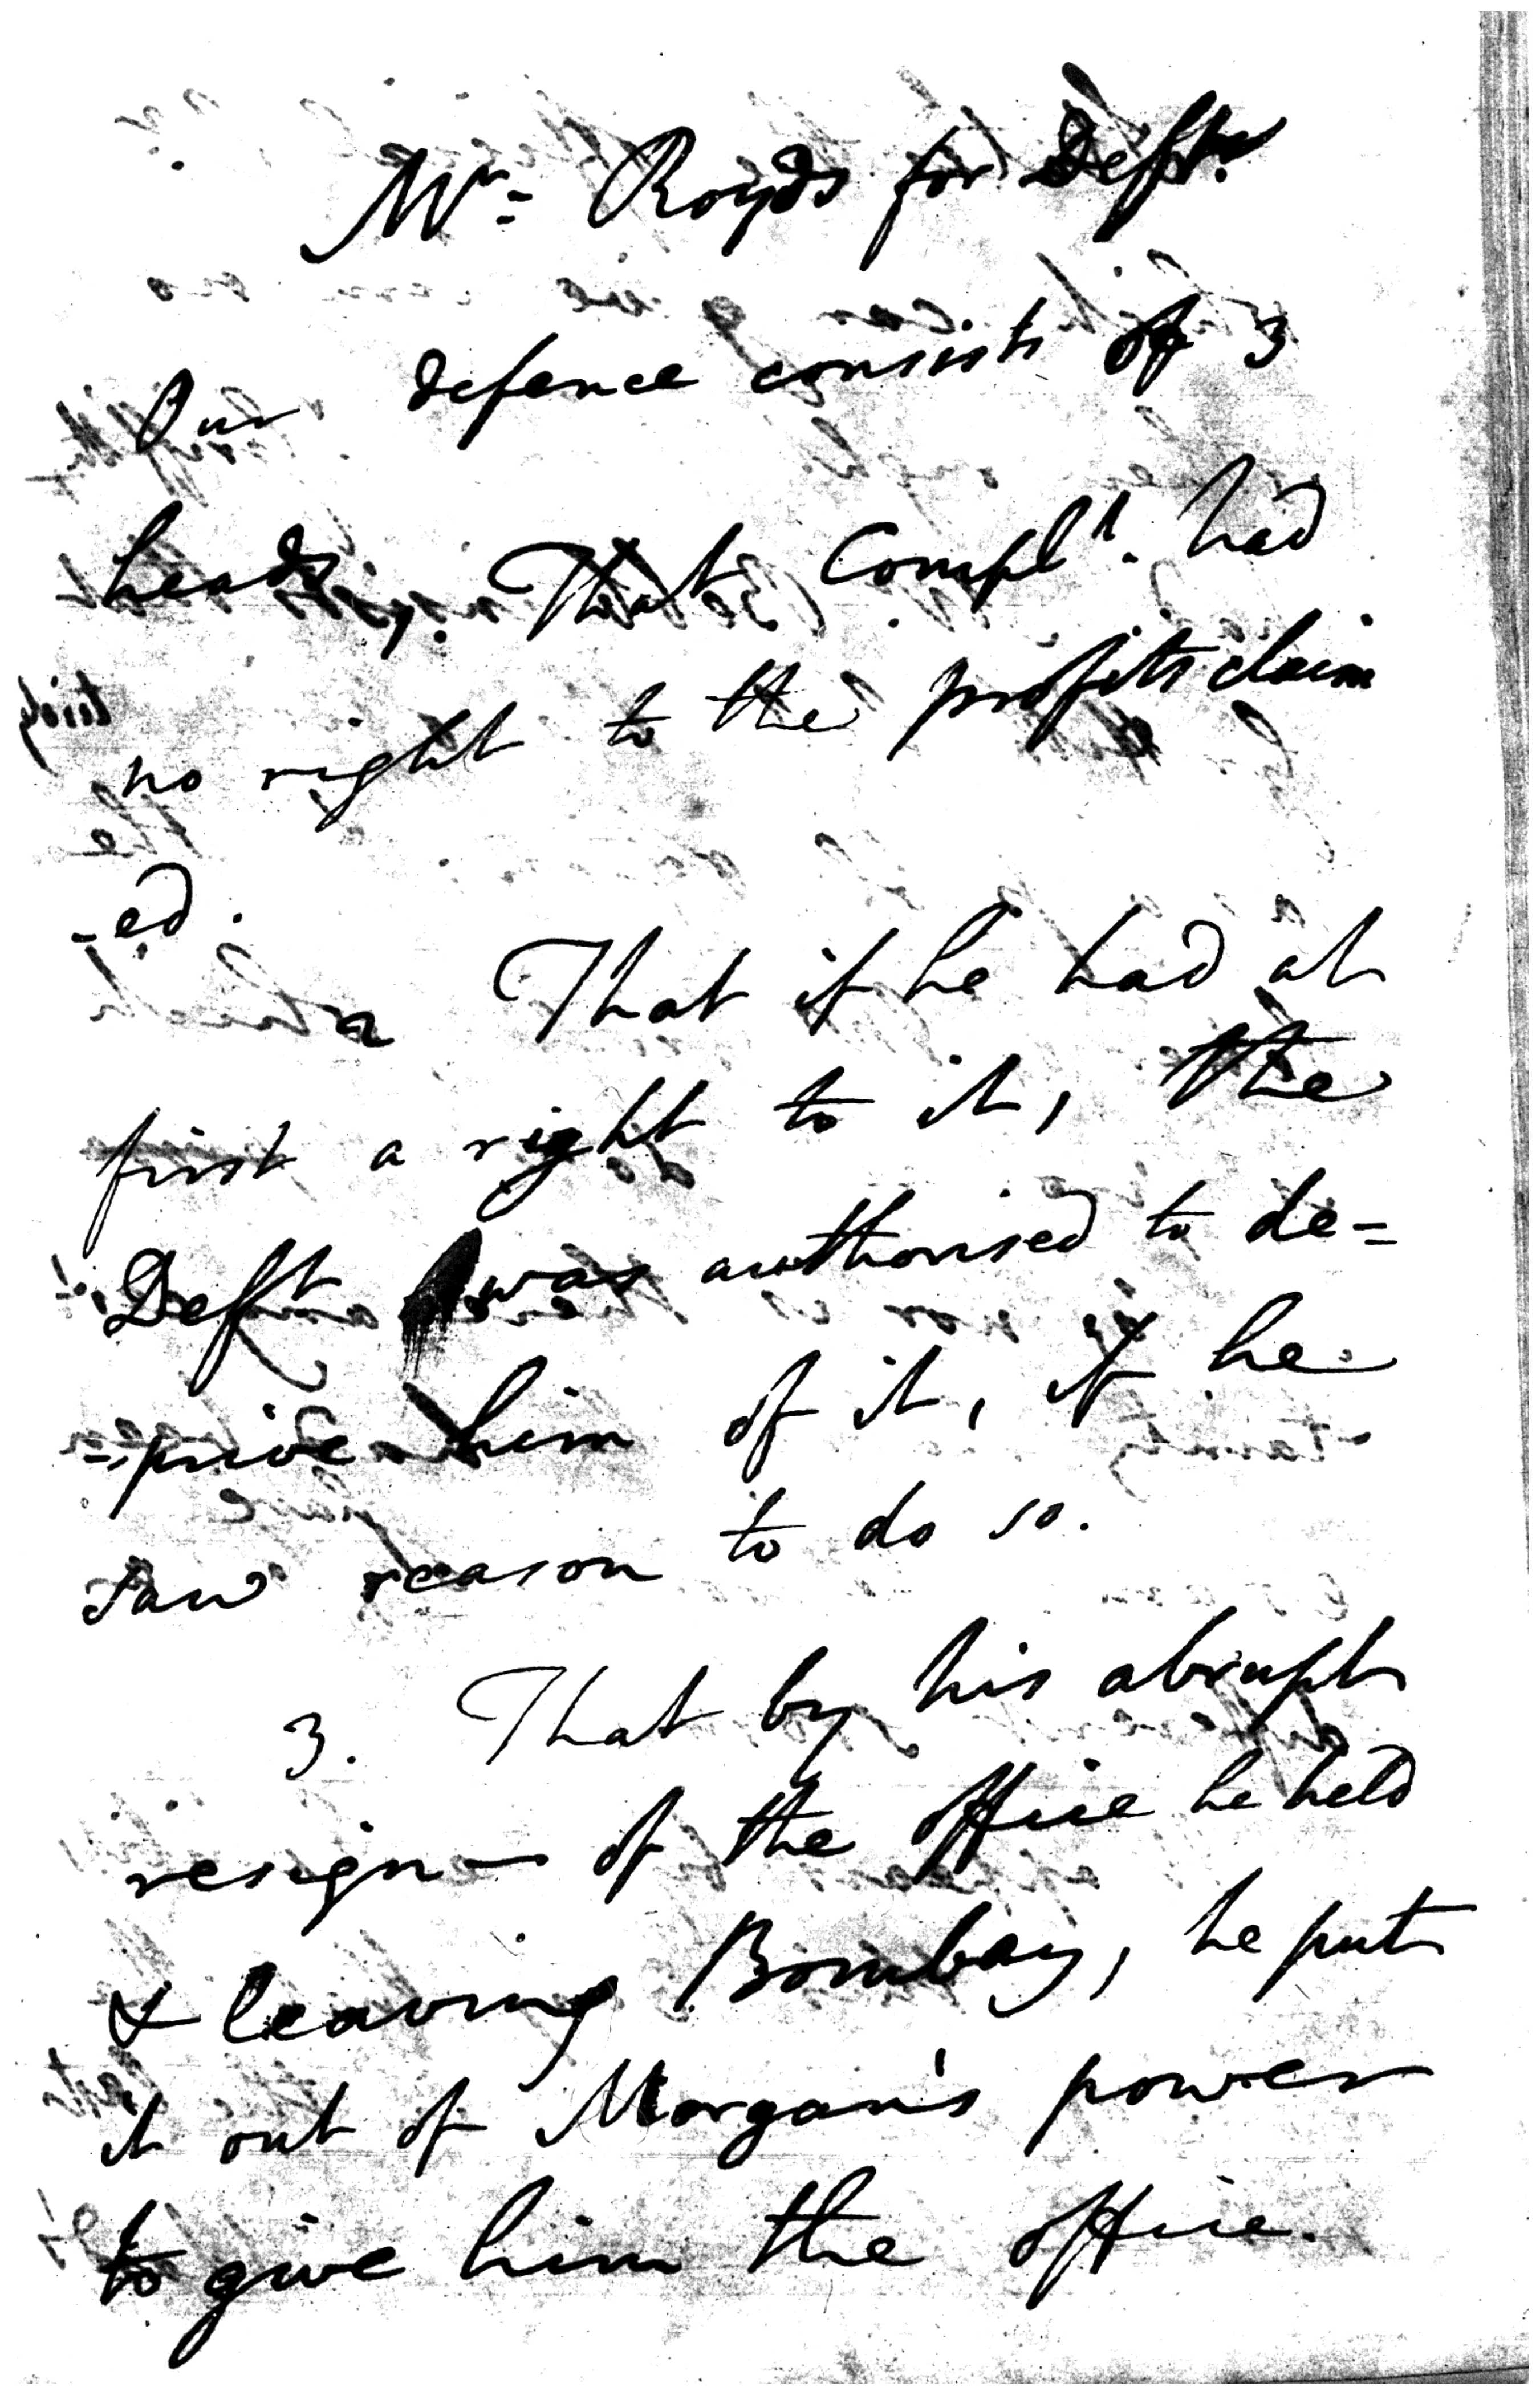 Mr= Royds for Deft.
Our defence consists of 3
heads, 1. That Complt. had
no right to the profits claim
-ed.
2 That if he had at
first a right to it, the
Deft was authorised to de=
=prive him of it, if he
saw reason to do so.
3. That by his abrupt
resign— of the office he held
& leaving Bombay, he put
it out of Morgan's power
to give him the office.